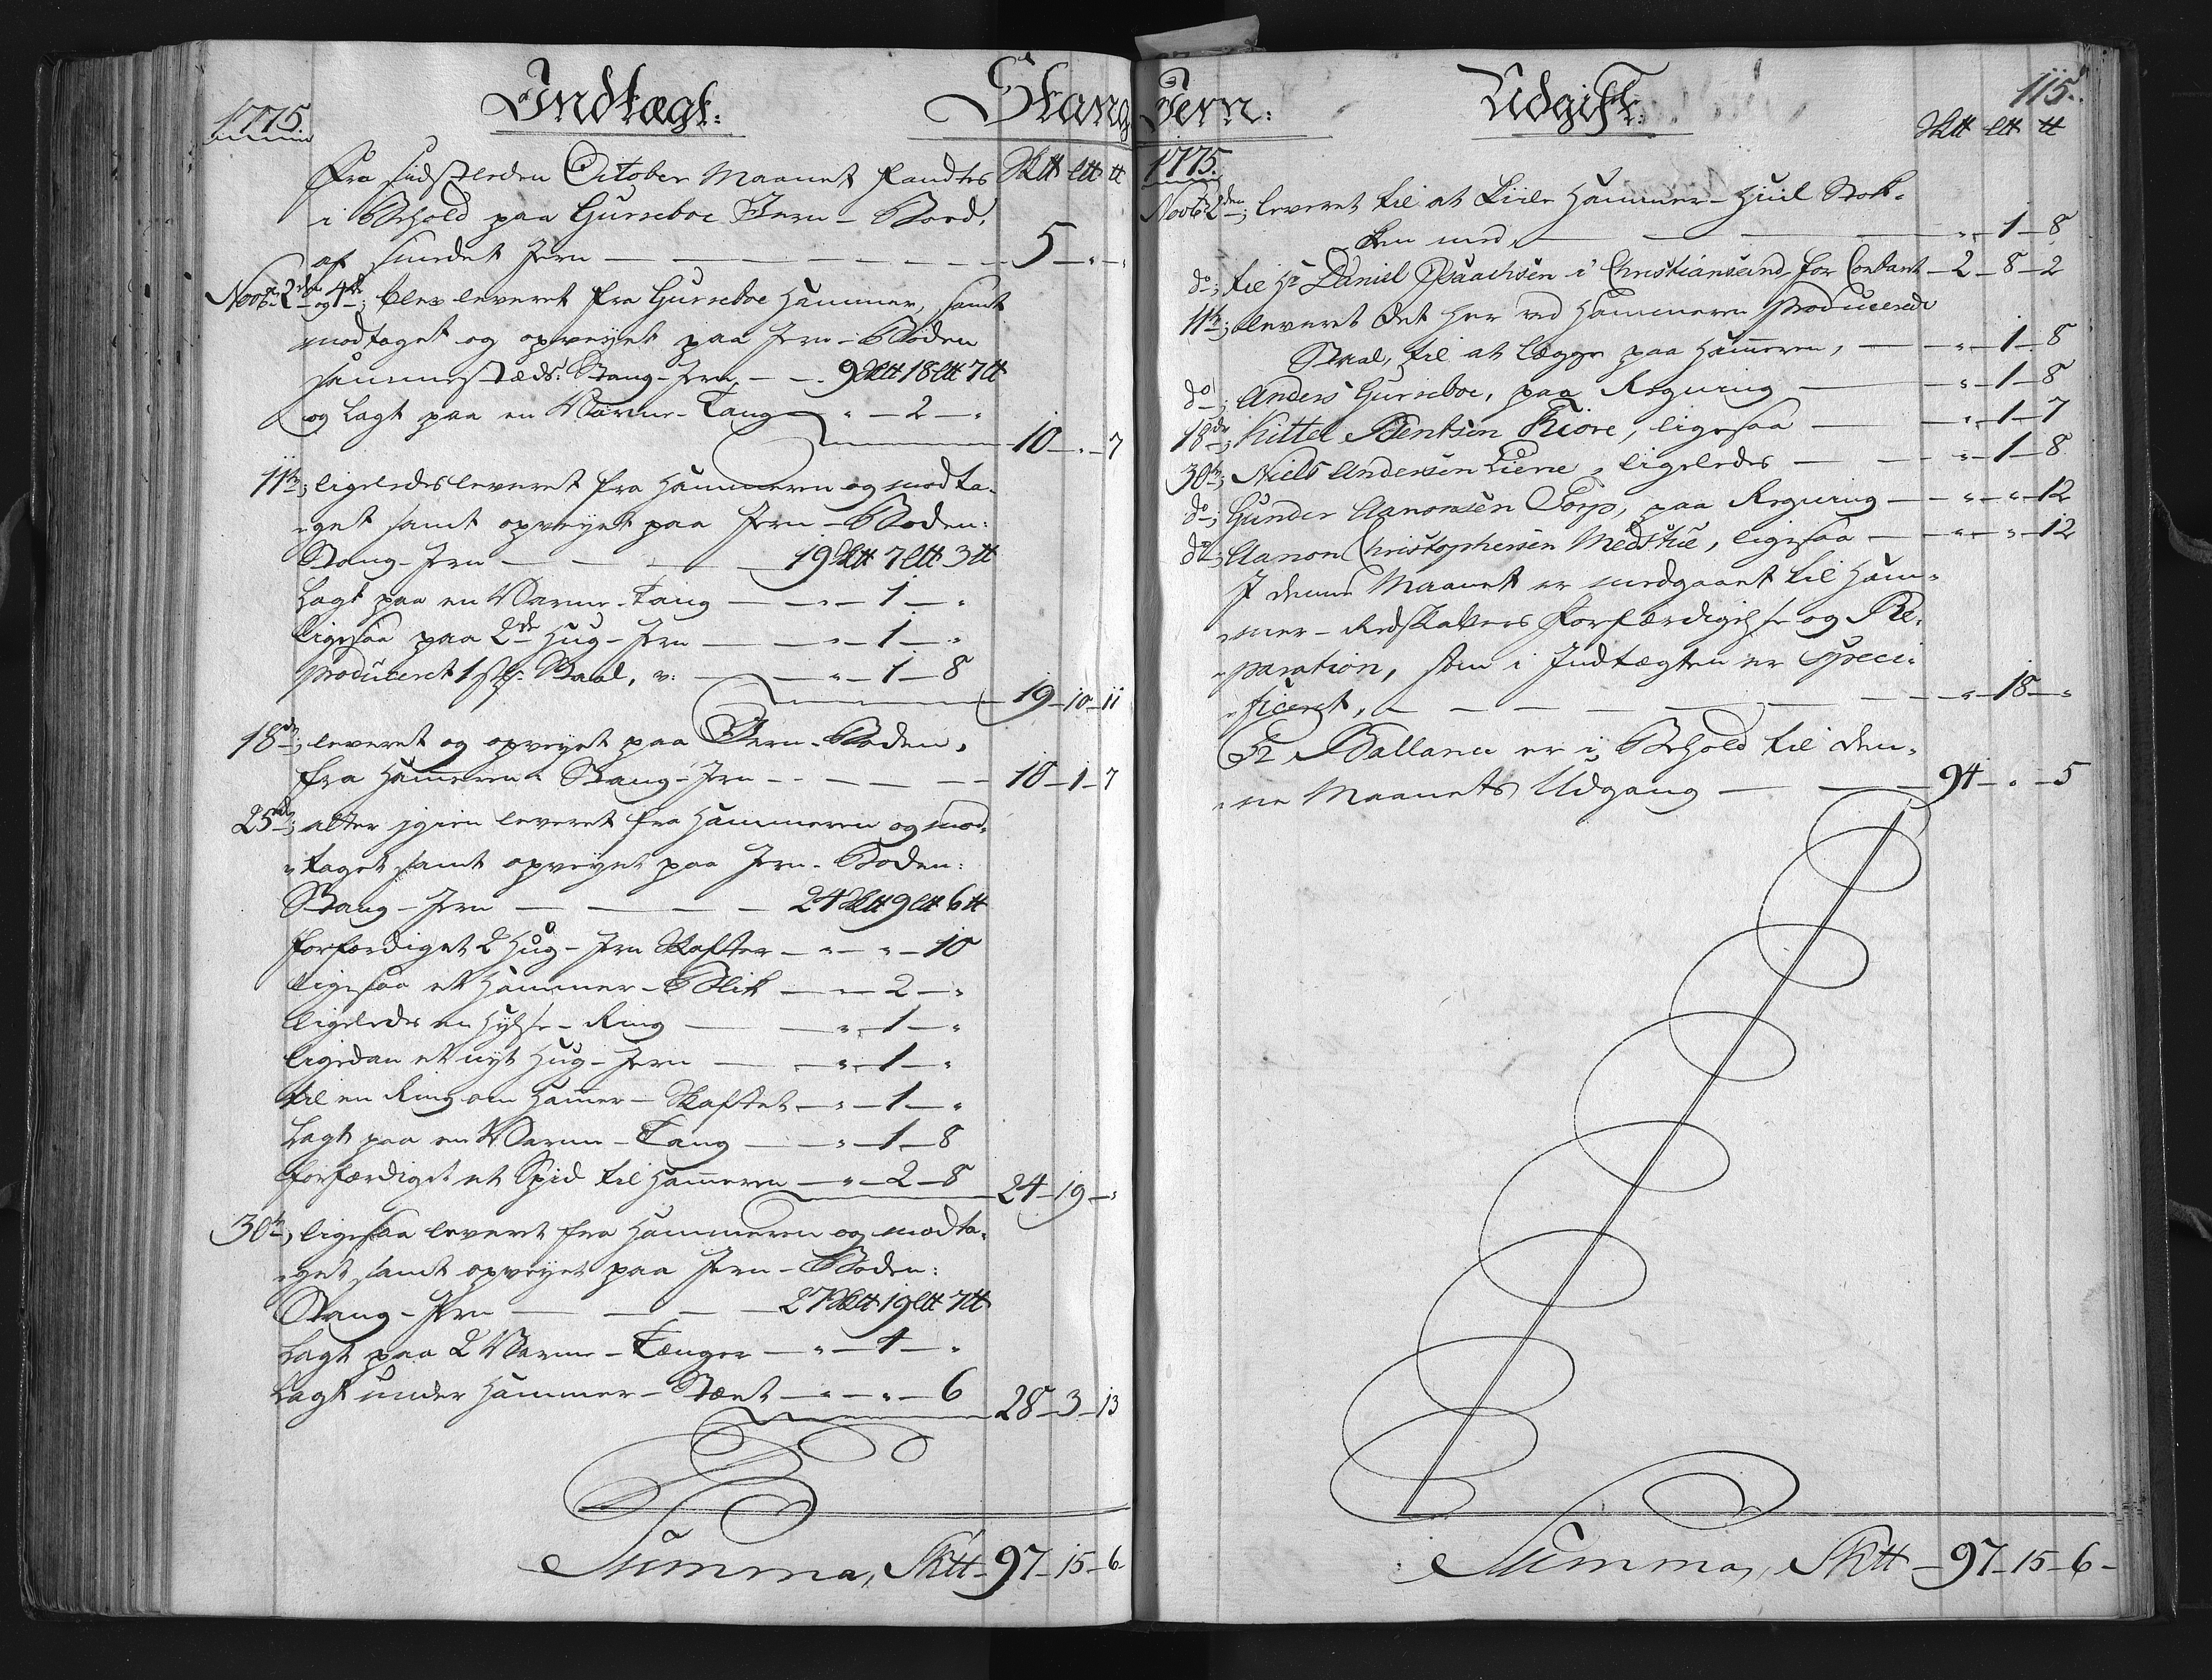 Indtægt:
Stang
1775
Sktt Ltt tt
Fra sidstleden October Maanet fandtes
i Behold paa Gurseboe Jern-Boed,
af smedet Jern — 5 - " - "
Novbr 2den og 4de; blev leveret fra Gurseboe Hammer, samt
modtaget og opveyet paa Jern-Boden
sammestæds: Stang-Jern, — 9Sktt 18Ltt 7tt
og lagt paa en Varme-Tang — " - 2 - "
10 - " - 7
11te; ligeledes leveret fra Hammeren og modta-
-get samt opveyet paa Jern-Boden:
Stang-Jern — 19Sktt 7Ltt 3tt
lagt paa en Varme-Tang — " - 1 - "
ligesaa paa 2de Hug-Jern — " - 1 - "
produceret 1 st: Staal, v: — " - 1 - 8
19 - 10 - 11
18de; leveret og opveyet paa Jern-Boden,
fra Hameren Stang-Jern — 10 - 1 - 7
25de; atter igien leveret fra Hammeren og mod-
-taget samt opveyet paa Jern-Boden:
Stang-Jern — 24Sktt 9Ltt 6tt
forfærdiget 2 Hug-Jern Skafter — " - " - 10
ligesaa et Hammer-Blik — " - 2 - "
ligeledes en Hylse-Ring — " - 1 - "
ligedan et nyt Hug-Jern — " - 1 - "
til en Ring om Hamer-Skaftet — " - 1 - "
lagt paa en Varme-Tang — " - 1 - 8
forfærdiget et Spid til Hameren — " - 2 - 8
24 - 19 - "
30te, ligesaa leveret fra Hammeren og modta-
-get samt opveyet paa Jern-Boden:
Stang-Jern — 27Sktt 19Ltt 7tt
lagt paa 2 Varme-Tænger — " - 4 - "
lagt under Hammer-Stæet — " - " - 6
28 - 3 - 13
Summa, Sktt - 97 - 15 - 6
Jern:
Udgift:
115.
Sktt Ltt tt
1775.
Novbr 2den; leveret til at Kiile Hammer-Hiul Stok-
ken med, — " - 1 - 8
do; til Hr Daniel Isaachsen i Christiansand for Contant - 2 - 8 - 2
11te; leveret det her ved Hammeren producerede
Staal, til at lægge paa Hameren, — " - 1 - 8
do; Anders Gurseboe, paa Regning — " - 1 - 8
18de; Kittel Bentsen Kiøre, ligesaa — " - 1 - 7
30te; Niels Andersen Liene, ligeledes — " - 1 - 8
do; Gunder Aanonsen Torp, paa Regning — " - " - 12
do; Aanon Christophersen Medstue, ligesaa — " - " - 12
I denne Maanet er medgaaet til Ham-
-mer-Redskabers Forfærdigelse og Re-
-paration, som i Indtægten er speci-
-ficeret, — " - 18 - "
Pr Ballance er i Behold til den-
-ne Maanets Udgang — 94 - " - 5
Summa, Sktt - 97 - 15 - 6 -